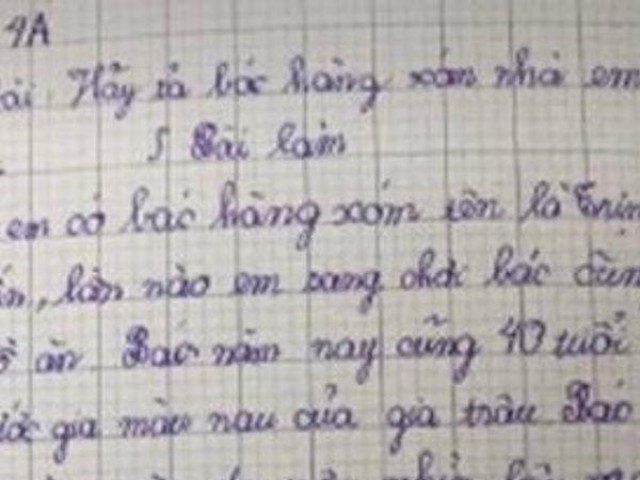 4A
ài Hãy tả bác hàng xóm nhà em
Bài làm
em có bác hàng xóm tên là Trin
ần, lần nào em sang chơi bác cũn
ồ ăn. Bác năm nay cũng 40 tuổi
ước gia màu nau của gia trâu Bác